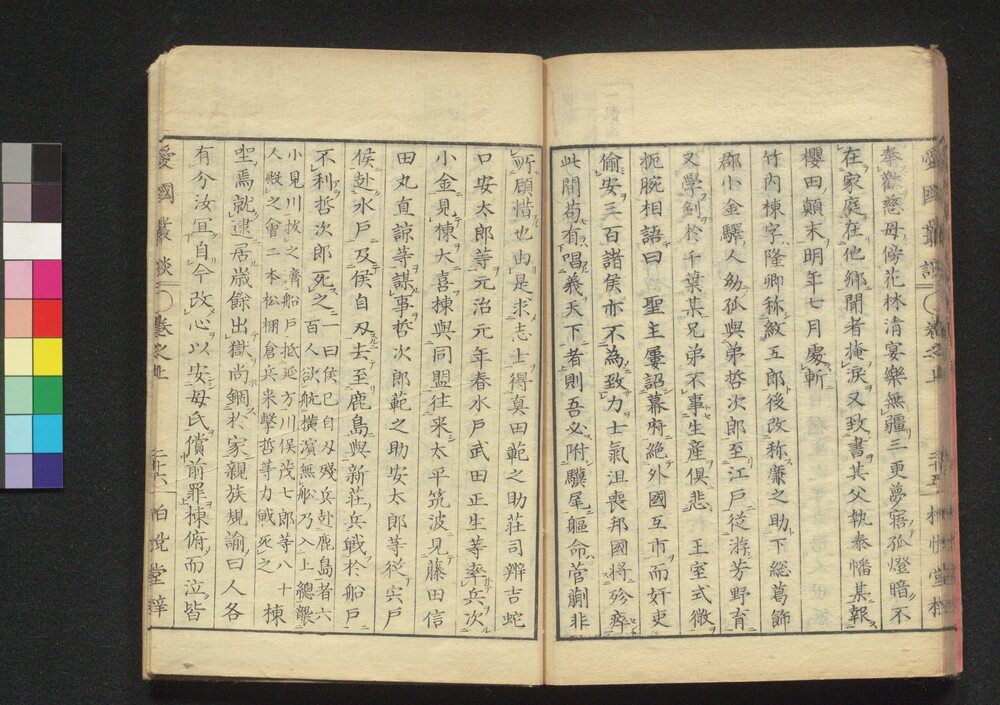 愛國叢談 卷之上 二十五
奉歡慈母傍花林清宴樂無疆三更夢寤孤燈暗不
在家庭在他鄉聞者掩淚又致書其父執泰幡某報
櫻田顛末明年七月處斬
竹内棟字隆卿称
五郎後改称廉之助下総葛飾
郡小金驛人幼孤與弟哲次郎至江戸從游芳野育
又學劍於千葉某兄弟不事生産俱悲王室式微
扼腕相語曰聖主屢詔幕府絶外國互市而奸吏
偷安三百諸侯亦不為致力士氣沮喪邦國將殄瘁
此間苟有唱義天下者則吾必附驥尾軀命菅蒯非
所顧惜也由是求志士得真田範之助莊司辯吉蛇
口安太郎等元治元年春水戸武田正生等率兵次
小金見棟大喜棟與同盟往来太平筑波見藤田信
田丸直諒等謀事哲次郎範之助安太郎等從宍戸
侯赴水戸及侯自刃去至鹿島與新莊兵戰於船戸
不利哲次郎死之
一曰侯已自刃殘兵赴鹿島者六
百人欲航横濱無舩乃入上總
小見川拔之齊船戸抵延方川俣茂七郎等八十
人殿之會二本松棚倉兵来擊哲等力戰死之
棟
聖焉就逮居歳餘出獄尚錮於家親族規諭曰人各
有分汝宜自今改心以安母氏償前罪棟俯而泣皆
愛國叢談 卷之上 二十六 柏悅堂梓